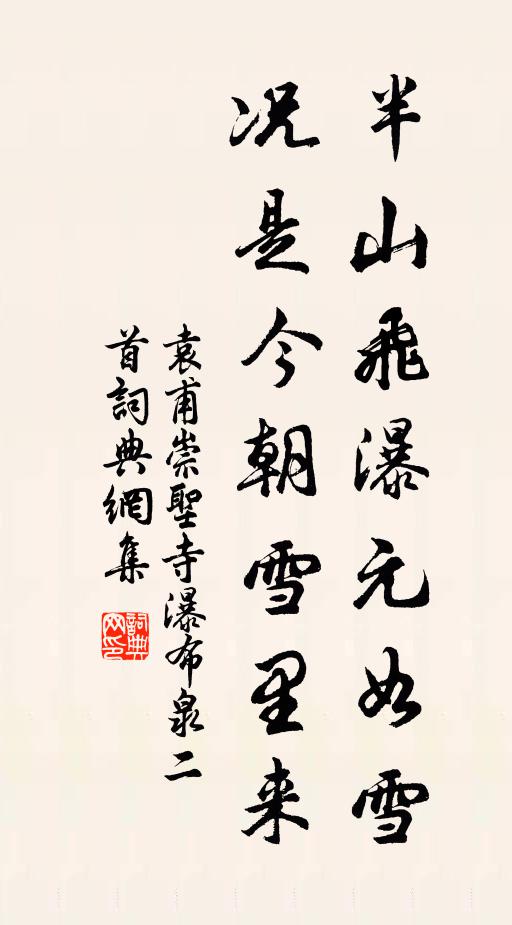 半山飛瀑元如雪
况是今朝雪里来
袁甫崇聖寺瀑布泉二
首詞典網集
詞典
网印